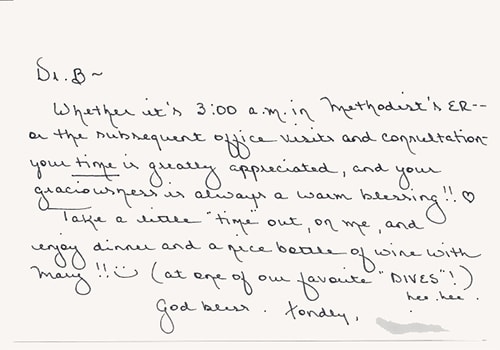 Dr. B ~
Whether it's 3:00 a.m. in Methodist's ER--
or the subsequent office visits and consultation
your time is greatly appreciated, and your
graciousness is always a warm blessing!! ♡
Take a little "time" out, on me, and
enjoy dinner and a nice bottle of wine with
Mary!! ☺ (at one of our favorite "DIVES"!)
hee. hee.
God bless. Fondly,